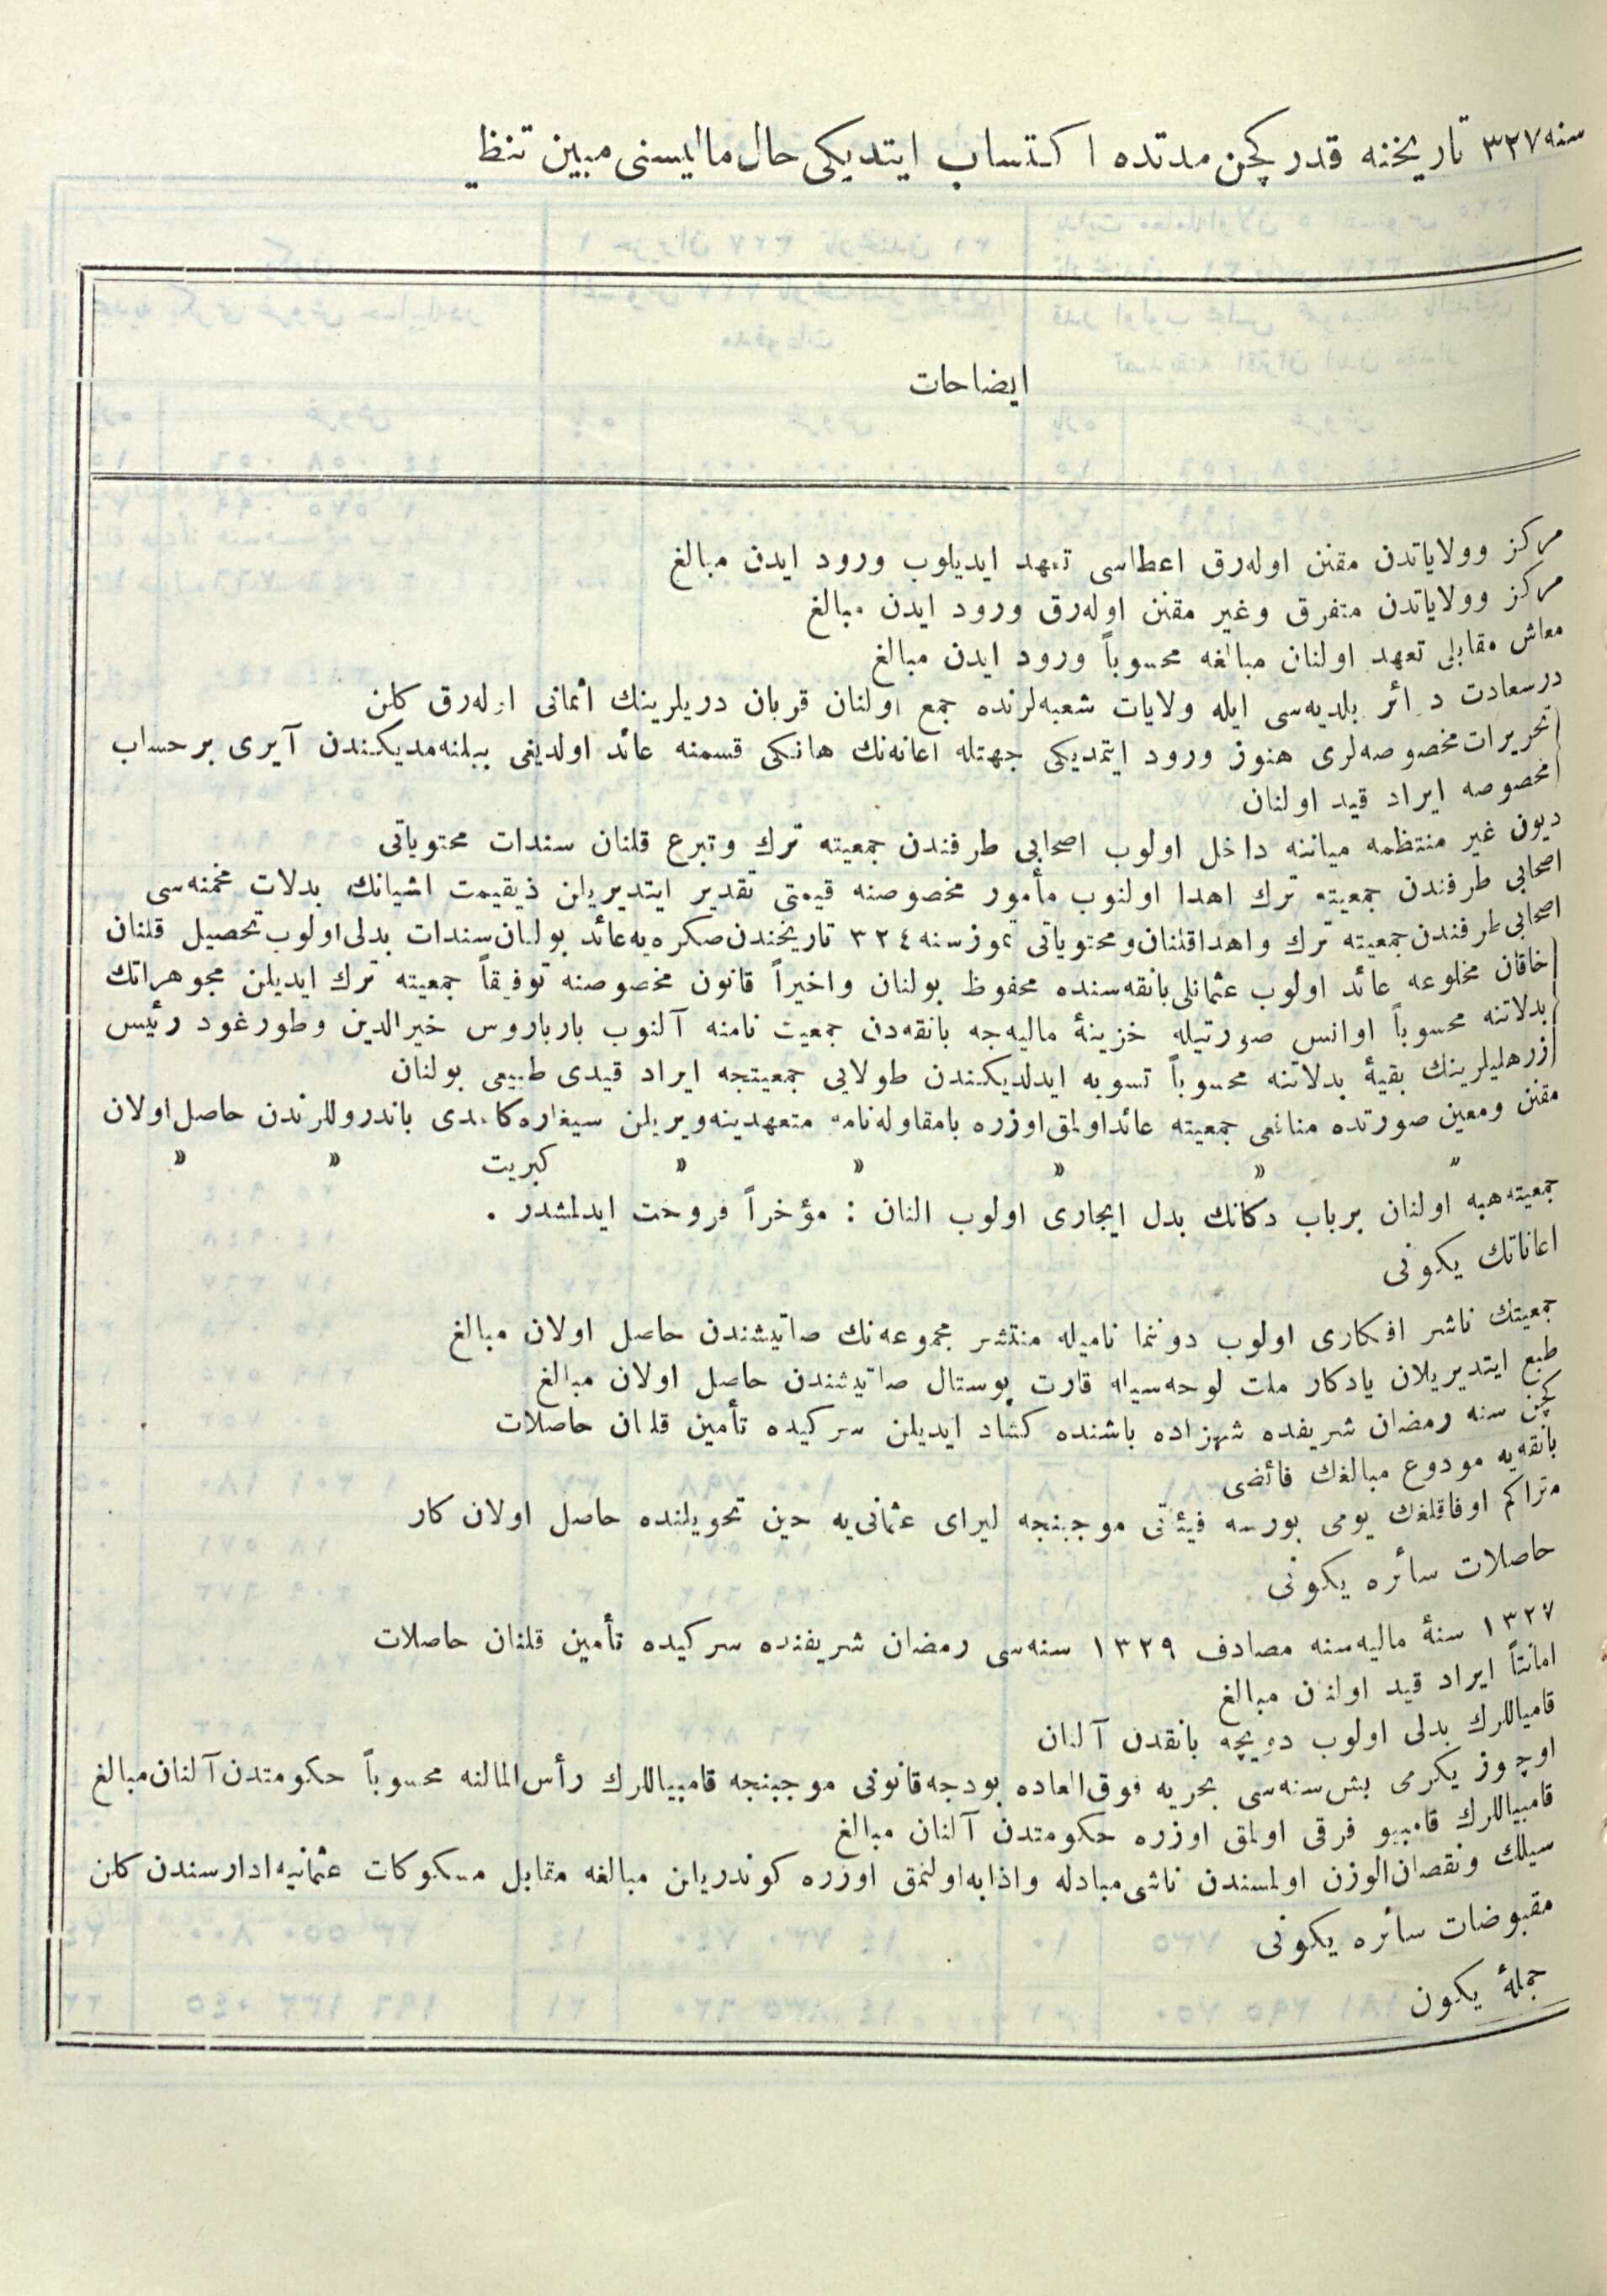 سنه ٣٢٧ تاریخنه قدر کچن مدتده اکتساب ایتدیکی حال مالیسنی مبین تنظی
ایضاحات
مرکز وولایاتدن مقنن اوله‌رق اعطاسی تعهد ایدیلوب ورود ایدن مبالغ
مرکز وولایاتدن متفرق وغیر مقنن اوله‌رق ورود ایدن مبالغ
معاش مقابلی تعهد اولنان مبالغه محسوباً ورود ایدن مبالغ
درسعادت دوائر بلدیه‌سی ایله ولایات شعبه‌لرنده جمع اولنان قربان دریلرینك أثمانی اوله‌رق کلن
تحریرات مخصوصه‌لری هنوز ورود ایتمدیکی جهتله اعانه‌نك هانکی قسمنه عائد اولدیغی بیلنه‌مدیکندن آیری بر حساب
مخصوصه ایراد قید اولنان
دیون غیر منتظمه میاننه داخل اولوب اصحابی طرفندن جمعیته ترك وتبرع قلنان سندات محتویاتی
اصحابی طرفندن جمعیته ترك اهدا اولنوب مأمور مخصوصنه قیمتی تقدیر ایتدیریلن ذیقیمت اشیانك بدلات مخمنه‌سی
اصحابی طرفندن جمعیته ترك واهدا قلنان ومحتویاتی تموز سنه ٣٢٤ تاریخندن صکره‌یه عائد بولنان سندات بدلی اولوب تحصیل قلنان
خاقان مخلوعه عائد اولوب عثمانلی بانقه‌سنده محفوظ بولنان واخیراً قانون مخصوصنه توفیقاً جمعیته ترك ایدیلن مجوهراتك
بدلاتنه محسوباً اوانس صورتیله خزینۀ مالیه‌جه بانقه‌دن جمعیت نامنه آلنوب بارباروس خیرالدین وطورغود رئیس
زرهلیلرینك بقیۀ بدلاتنه محسوباً تسویه ایدلدیکندن طولایی جمعیتجه ایراد قیدی طبیعی بولنان
مقنن ومعین صورتده منافعی جمعیته عائد اولمق اوزره بامقاوله‌نامه متعهدینه ویریلن سیغاره کاغدی باندروللرندن حاصل اولان
» » » » » کبریت » »
جمعیته هبه اولنان برباب دکانك بدل ایجاری اولوب النان : مؤخراً فروخت ایدلمشدر .
اعاناتك یکونی
جمعیتك ناشر افکاری اولوب دوننما نامیله منتشر مجموعه‌نك صاتیشندن حاصل اولان مبالغ
طبع ایتدیریلان یادکار ملت لوحه‌سیله قارت پوستال صاتیشندن حاصل اولان مبالغ
کچن سنه رمضان شریفده شهزاده باشنده کشاد ایدیلن سرکیده تأمین قلنان حاصلات
بانقه‌یه مودوع مبالغك فائضی
متراکم اوفاقلغك یومی بورسه فیئتی موجبنجه لیرای عثمانی‌یه حین تحویلنده حاصل اولان کار
حاصلات سائره یکونی
١٣٢٧ سنۀ مالیه‌سنه مصادف ١٣٢٩ سنه‌سی رمضان شریفنده سرکیده تأمین قلنان حاصلات
امانتاً ایراد قید اولنان مبالغ
قامبیاللرك بدلی اولوب دویچه بانقدن آلنان
اوچیوز یکرمی بش سنه‌سی بحریه فوق‌العاده بودجه قانونی موجبنجه قامبیاللرك رأس‌المالنه محسوباً حکومتدن آلنان مبالغ
قامبیاللرك قامبیو فرقی اولمق اوزره حکومتدن آلنان مبالغ
سیلك ونقصان‌الوزن اولمسندن ناشی مبادله واذابه اولنمق اوزره کوندریلن مبالغه مقابل مسکوکات عثمانیه ادارسندن کلن
مقبوضات سائره یکونی
جملۀ یکون